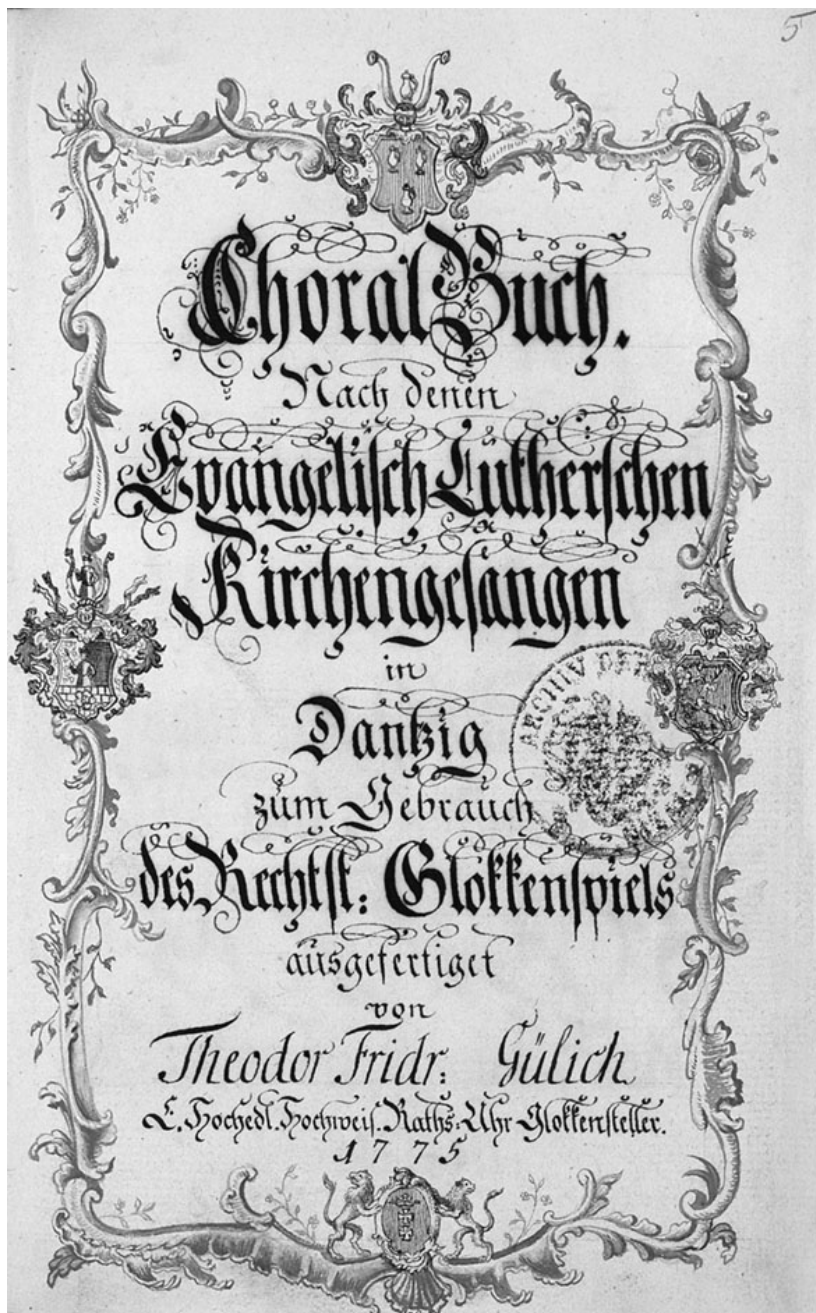 5
Choral Buch.
Nach denen
Evangelisch Lutherschen
Kirchengesängen
in
Dantzig
zum Gebrauch
des Rechtst: Glokkenspiels
ausgefertiget
von
Theodor Fridr: Gülich
E. Hochedl. Hochweis. Raths-Uhr Glokkensteller.
1775
ARCHIV DER